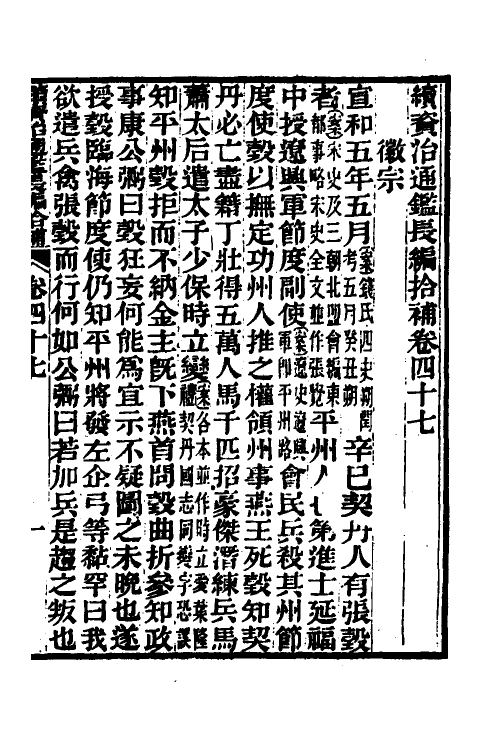 續資治通鑑長編拾補卷四十七
徽宗
宣和五年五月案錢氏四史朔閏考五月癸丑朔辛巳契丹人有張瑴
者案宋史及三朝北盟會編東都事略宋史全文並作張覺平州人第進士延福
中授遼興軍節度副使案遼史遼興軍卽平州路會民兵殺其州節
度使瑴以撫定功州人推之權領州事燕王死瑴知契
丹必亡盡籍丁壯得五萬人馬千匹招豪傑潛練兵馬
蕭太后遣太子少保時立變案各本並作時立愛葉隆禮契丹國志同變字恐誤
知平州瑴拒而不納金主旣下燕首問瑴曲折參知政
事康公弼曰瑴狂妄何能爲宜示不疑圖之未晩也遂
授瑴臨海節度使仍知平州將發左企弓等黏罕曰我
欲遣兵禽張瑴而行何如公弼曰若加兵是趨之叛也
卷四十七
一